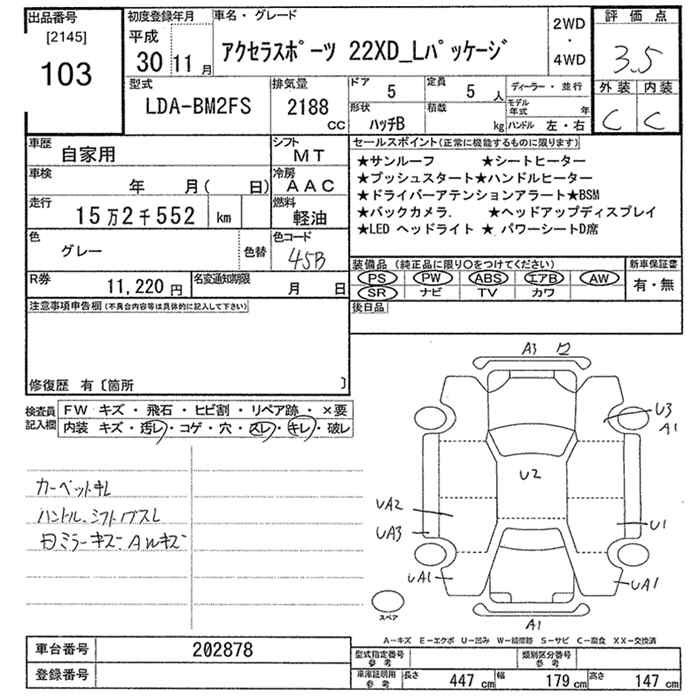 出品番号
[2145]
103
初度登録年月
平成
30 11月
車名・グレード
アクセラスポーツ 22XD_Lパッケージ
2WD
・
4WD
評価点
3.5
外装 内装
C C
型式
LDA-BM2FS
排気量
2188
CC
ドア
5
定員
5 人
ディーラー・並行
形状
ハッチB
積載
kg
モデル年式 年
ハンドル 左・右
車歴
自家用
シフト
MT
車検
年 月( 日)
冷房
AAC
走行
15万2千552 km
燃料
軽油
色
グレー
色替
色コード
45B
R券
11,220 円
名変通知期限
月 日
セールスポイント(正常に機能するものに限ります)
★サンルーフ ★シートヒーター
★プッシュスタート★ハンドルヒーター
★ドライバーアテンションアラート★BSM
★バックカメラ. ★ヘッドアップディスプレイ
★LED ヘッドライト ★ パワーシートD席
装備品 (純正品に限り○をつけてください)
新車保証書
PS PW ABS エアB AW
SR ナビ TV カワ
有・無
後日品
注意事項申告欄(不具合内容等は具体的に記入して下さい)
修復歴 有〔箇所 〕
検査員
記入欄
FW キズ・飛石・ヒビ割・リペア跡・×要
内装 キズ・汚レ・コゲ・穴・スレ・キレ・破レ
カーペットキレ
ハンドル、シフトノブスレ
ミラーキズ、AWキズ
A3
U3
A1
U2
UA2
UA3
U1
UA1
UA1
A1
スペア
A−キズ E−エクボ U−凹み W−補修跡 S−サビ C−腐食 XX−交換済
車台番号
202878
登録番号
型式指定番号
参考
類別区分番号
参考
車庫証明用
参考
長さ 447 cm 幅 179 cm 高さ 147 cm